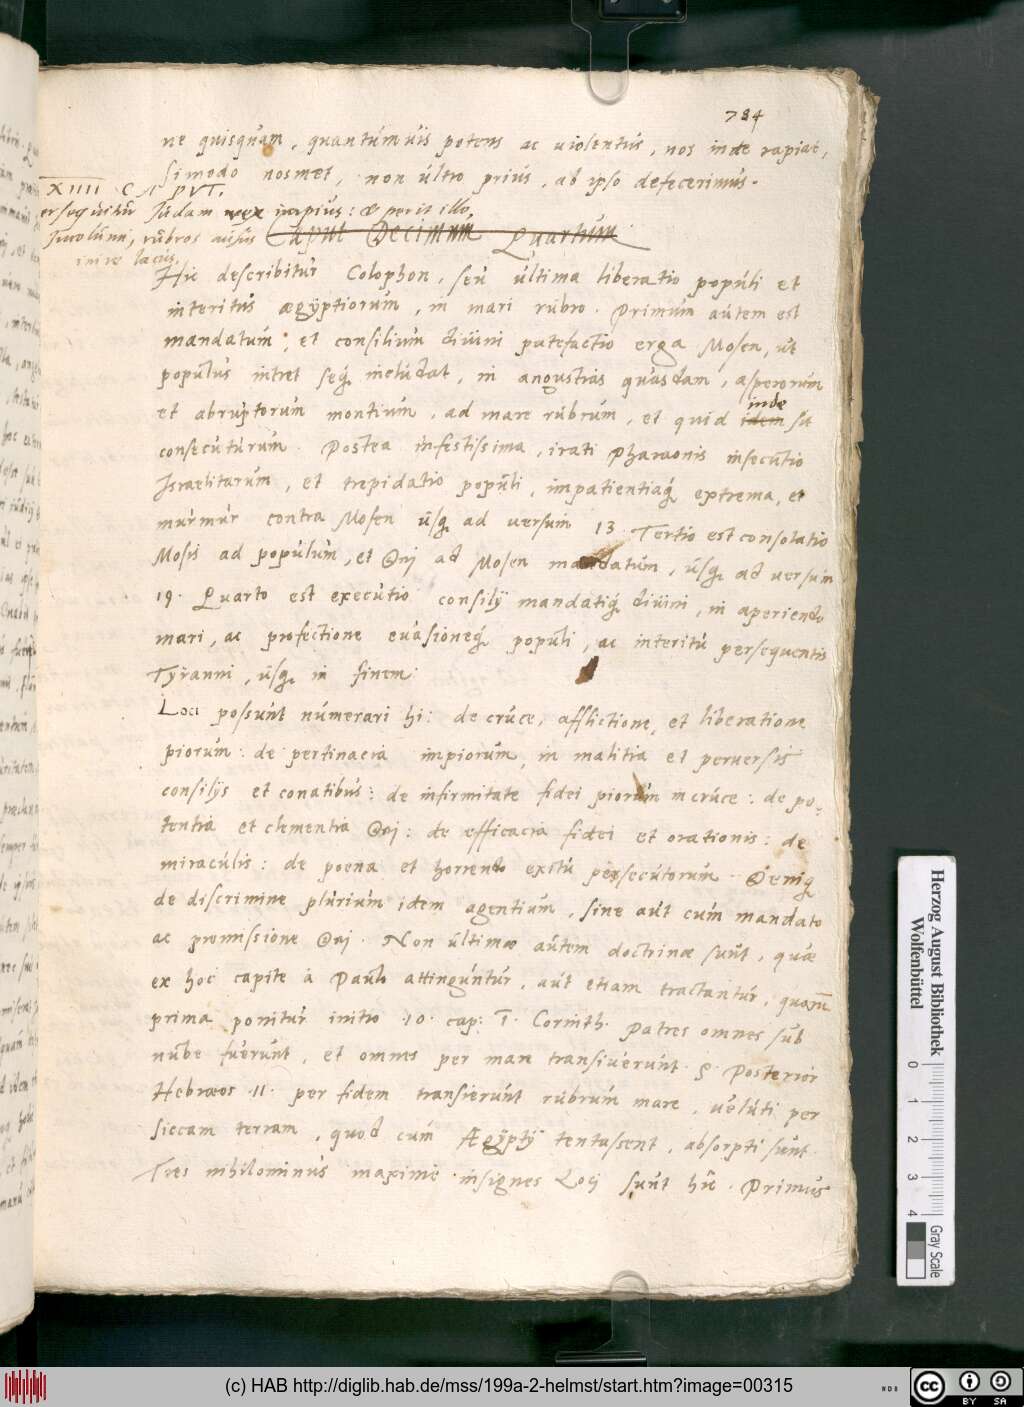 784
ne quisquam, quantúmúis potens ac uiolentús, nos inde rapiat,
simodo nosmet, non últro prius, ab ipso defecerimús.
XIIII CAPVT.
ersequitur Iudam rex impius: & perit illo,
inuolumi, rubros ausus
inire lacus.
Caput Decimum Quartum
Hic describitúr Colophon, seú última liberatio popúli et
interitús ægÿptiorúm, in mari rúbro. Primúm aútem est
mandatúm, et consiliúm diúini patefactio erga Mosen, út
popúlús intret seq́ inclúdat, in angustias quasdam, asperorúm
et abrúptorúm montiúm, ad mare rúbrúm, et quid idem inde sit
consecútúrúm. Postea infestissima, irati Pharaonis insecútio
Israelitarúm, et trepidatio popúli, impatientiaq́ extrema, et
múrmúr contra Mosen úsq́ ad versúm 13. Tertio est consolatio
Mosis ad popúlúm, et Dnj ad Mosen mandatúm, úsq́ ad versúm
19. Quarto est execútio consilÿ mandatiq́ diúini, in aperiendo
mari, ac profectione euasioneq́ popúli, ac interitú persequentis
Tÿranni, úsq́ in finem.
Loci possúnt númerari hi: de crúce, afflictione, et liberatione
piorúm: de pertinacia impiorúm, in malitia et perversis
consilijs et conatibús: de infirmitate fidei piorúm in crúce: de po-
tentia et clementia Dnj: de efficacia fidei et orationis: de
miracúlis: de poena et horrendo exitú persecútorúm. Deniq́
de discrimine plúriúm idem agentiúm, sine aút cúm mandato
ac promissione Dnj. Non últimæ aútem doctrinæ súnt, quæ
ex hoc capite á Paúlo attingúntúr, aút etiam tractantúr, quarū
prima ponitúr initio .10. cap: 1. Corinth. Patres omnes súb
núbe fúerúnt, et omnes per mare transiúerúnt. &. Posterior
Hebræos .11. per fidem transierúnt rúbrúm mare, velúti per
siccam terram, quod cúm Ægÿptÿ tentassent, absorpti súnt.
Tres nihilominús maximè insignes Locj súnt hic. Primús
Herzog August Bibliothek
Wolfenbüttel
0 1 2 3 4
Gray Scale
(c) HAB http://diglib.hab.de/mss/199a-2-helmst/start.htm?image=00315
cc BY SA